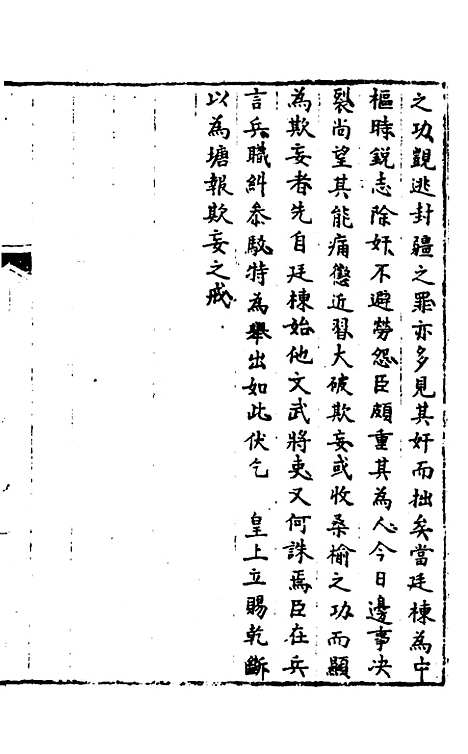 之功覬逃封疆之罪亦多見其奸而拙矣當廷棟為中
樞時銳志除奸不避勞怨臣頗重其為人今日邊事決
裂尚望其能痛懲近習大破欺妄或收桑榆之功而顯
為欺妄者先自廷棟始他文武將吏又何誅焉臣在兵
言兵職糾叅駁特為舉出如此伏乞　皇上立賜乾斷
以為塘報欺妄之戒